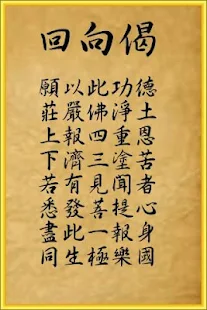 回向偈
願以此功德
莊嚴佛淨土
上報四重恩
下濟三塗苦
若有見聞者
悉發菩提心
盡此一報身
同生極樂國